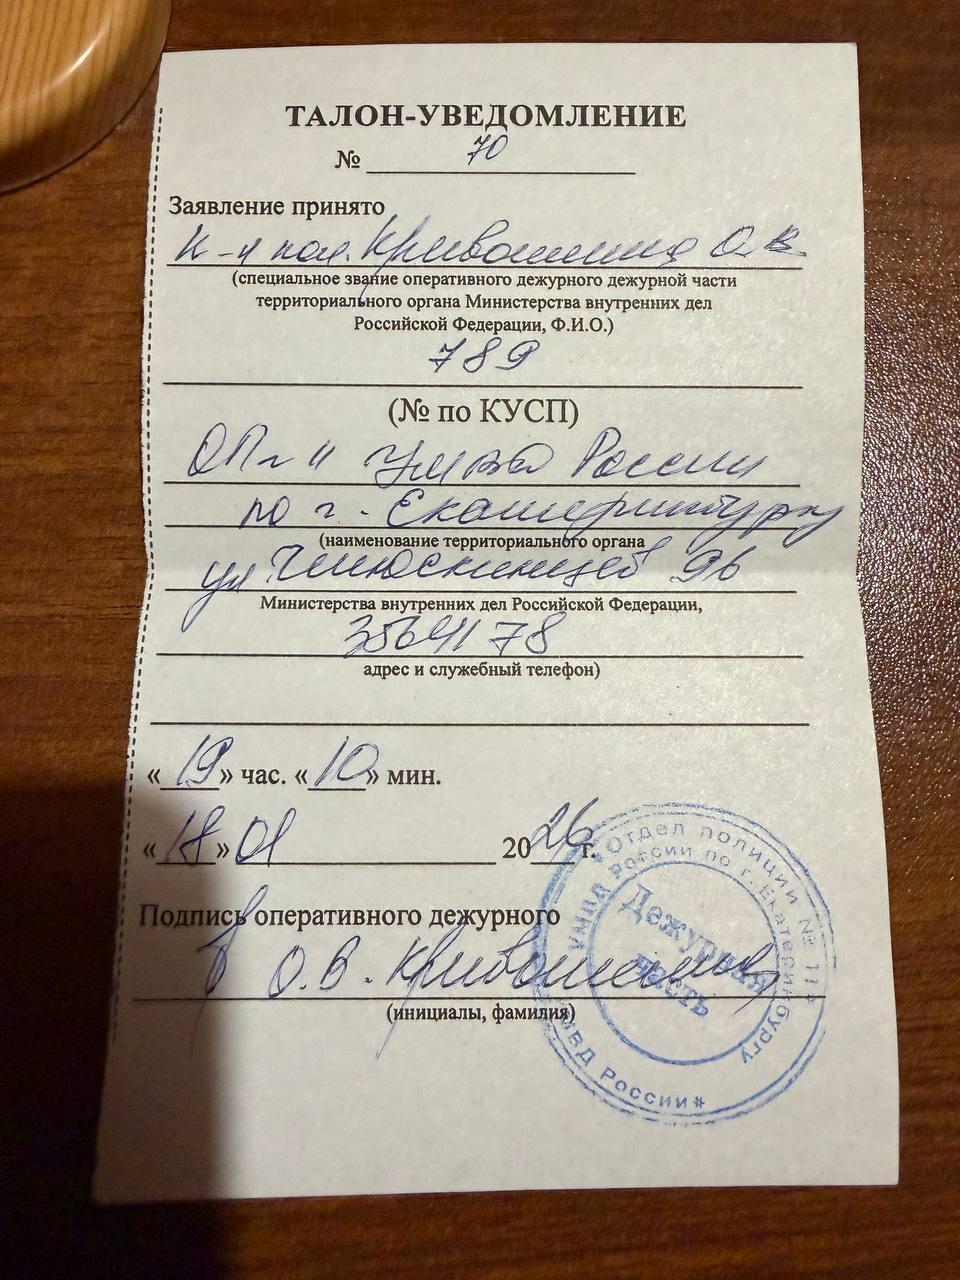 ТАЛОН-УВЕДОМЛЕНИЕ
№ 70
Заявление принято
к-н пол. Кривошеина О.В.
(специальное звание оперативного дежурного дежурной части
территориального органа Министерства внутренних дел
Российской Федерации, Ф.И.О.)
789
(№ по КУСП)
ОП № 11 УМВД России
по г. Екатеринбургу
(наименование территориального органа
ул Челюскинцев 96
Министерства внутренних дел Российской Федерации,
3564178
адрес и служебный телефон)
«19» час. «10» мин.
«18» 01 2026 г.
Подпись оперативного дежурного
О.В. Кривошеина
(инициалы, фамилия)
Отдел полиции № 11
УМВД России по г. Екатеринбургу
МВД России*
Дежурная
часть